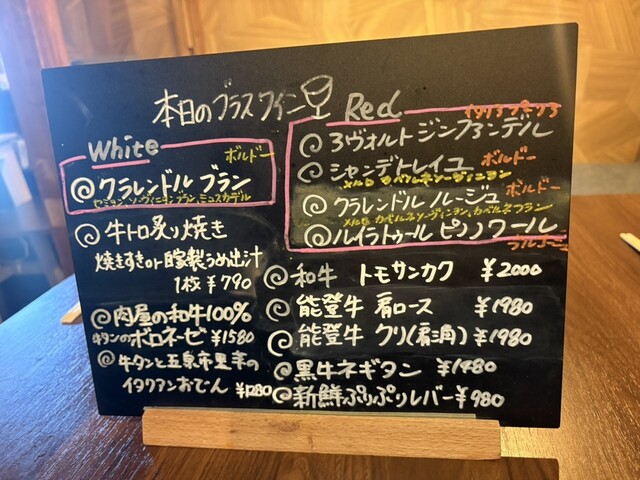 本日のグラスワイン
White
ボルドー
クラレンドル ブラン
セミヨン,ソーヴィニヨンブラン,ミュスカデル
Red
イタリアプーリア
3ヴォルト ジンファンデル
シャンデトレイユ ボルドー
メルロ カベルネソーヴィニヨン
クラレンドル ルージュ ボルドー
メルロ カベルネソーヴィニヨン,カベルネフラン
ルイラトゥール ピノノワール
牛トロ炙り焼き
焼きすきor自家製うめ出汁
1枚 ¥790
肉屋の和牛100%
牛タンのボロネーゼ ¥1580
牛タンと五泉市里芋の
イタリアンおでん ¥1280
和牛 トモサンカク ¥2000
能登牛 肩ロース ¥1980
能登牛 クリ(肩三角) ¥1980
黒牛ネギタン ¥1480
新鮮ぷりぷりレバー ¥980